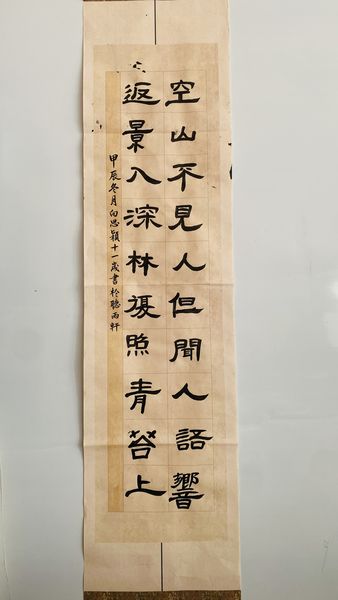 空山不見人但聞人語響
返景入深林復照青苔上
甲辰冬月向思穎十一歲書於聽雨軒